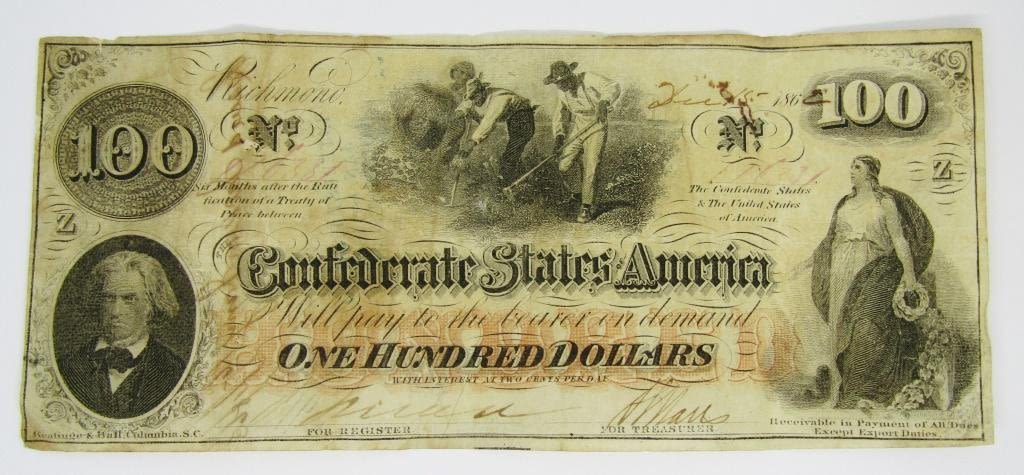 Richmond,
186
100
100
No.
No.
Six Months after the Rati
fication of a Treaty of
Peace between
The Confederate States
& The United States
of America
Z
Z
Confederate States America
Will pay to the bearer on demand
ONE HUNDRED DOLLARS
WITH INTEREST AT TWO CENTS PER DAY
FOR REGISTER
FOR TREASURER
Keatinge & Ball, Columbia, S.C.
Receivable in Payment of All Dues
Except Export Duties.